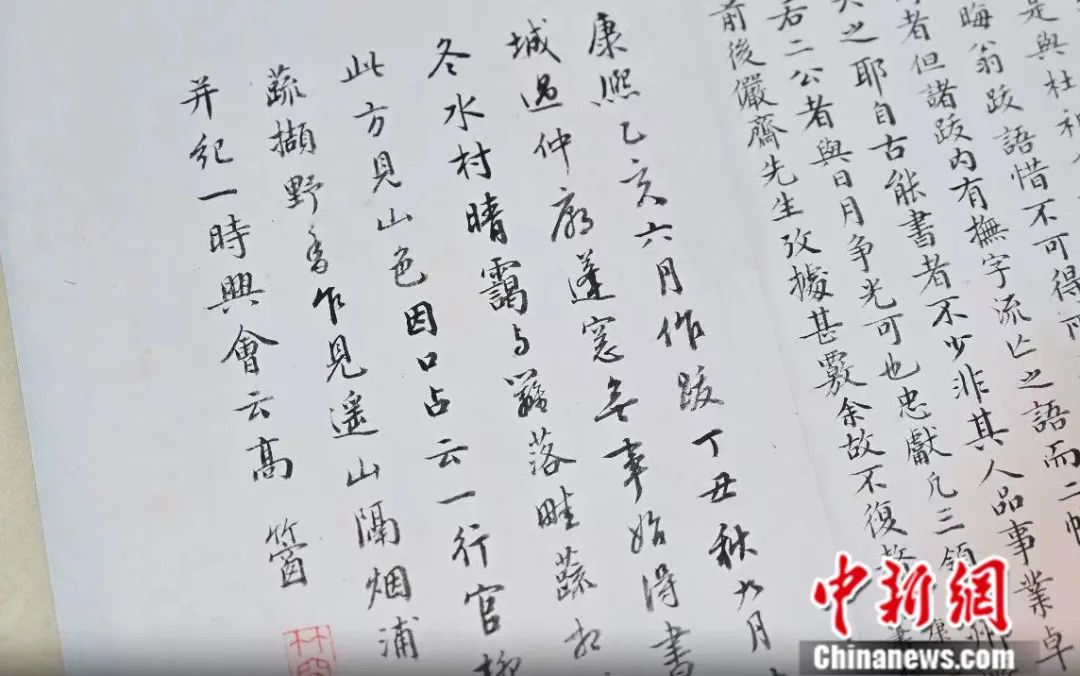 是與杜祁
晦翁跋語惜不可得
者但諸跋内有撫字流亡之語而二
之耶自古能書者不少非其人品事業卓
若二公者與日月争光可也忠獻凡三領
前後儼齋先生攷據甚覈余故不復
康熙乙亥六月作跋丁丑秋九月
城過仲廟蓬窓無事始得書
冬水村晴靄与籬落畦蔬相
此方見山色因口占云一行官柳
蔬擷野香乍見遥山隔烟浦
并紀一時興會云高
中新网
Chinanews.com